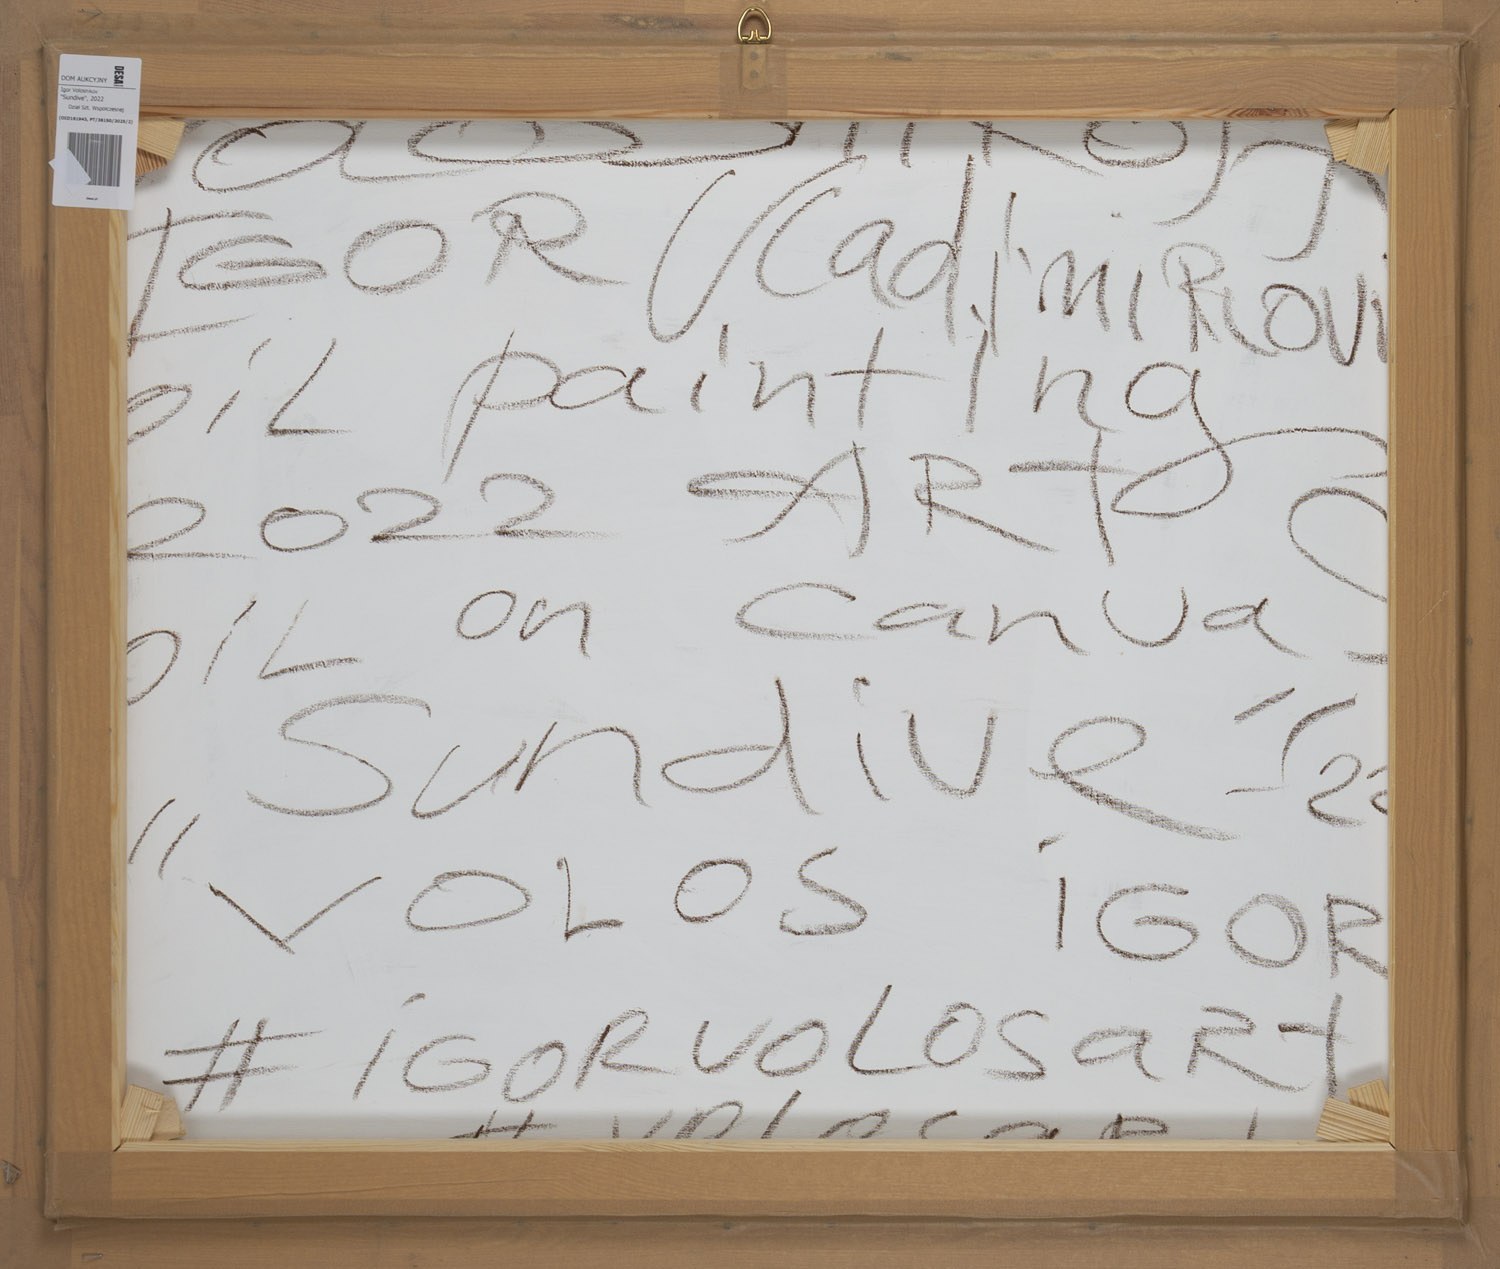 DESA
DOM AUKCYJNY
Igor Volosnikov
"Sundive", 2022
Dział Szt. Współczesnej
IGOR Vladimirovi
oil painting
2022 ART
oil on canva
Sundive" (22
"VOLOS iGOR
#iGORVOLOSaRt
#VOLOSaR